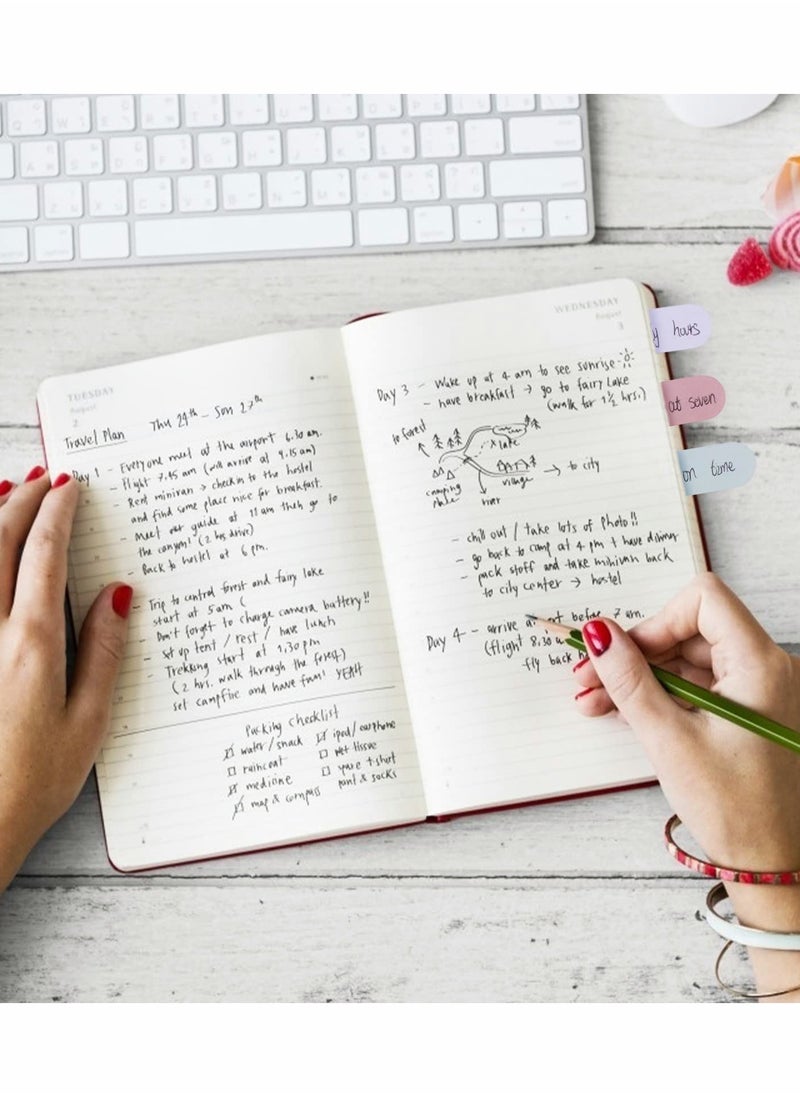 TUESDAY
August
2
Travel Plan Thu 24th - Sun 27th
Day 1 - Everyone meet at the airport 6.30 am.
- Flight 7.45 am (will arrive at 9.15 am)
- Rent minivan → check in to the hostel
and find some place nice for breakfast.
- Meet our guide at 11 am then go to
the canyon! (2 hrs drive)
- Back to hostel at 6 pm.
- Trip to central forest and fairy lake
start at 5am (
- Don't forget to charge camera battery!!
- Set up tent / rest / have lunch
- Trekking start at 1.30 pm
(2 hrs. walk through the forest)
set campfire and have fun! YEAH
Packing Checklist
water/snack
raincoat
medicine
map & compass
ipod/earphone
wet tissue
spare t-shirt
pant & socks
WEDNESDAY
August
3
Day 3 - Wake up at 4 am to see sunrise
- have breakfast → go to fairy lake
(walk for 1 1/2 hrs.)
to forest
lake
camping place
village
river
→ to city
- chill out / take lots of photo!!
- go back to camp at 4 pm + have dinner
- pack stuff and take minivan back
to city center → hostel
Day 4 - arrive before 7 am.
(flight 8.30
fly back
hours
at seven
on time